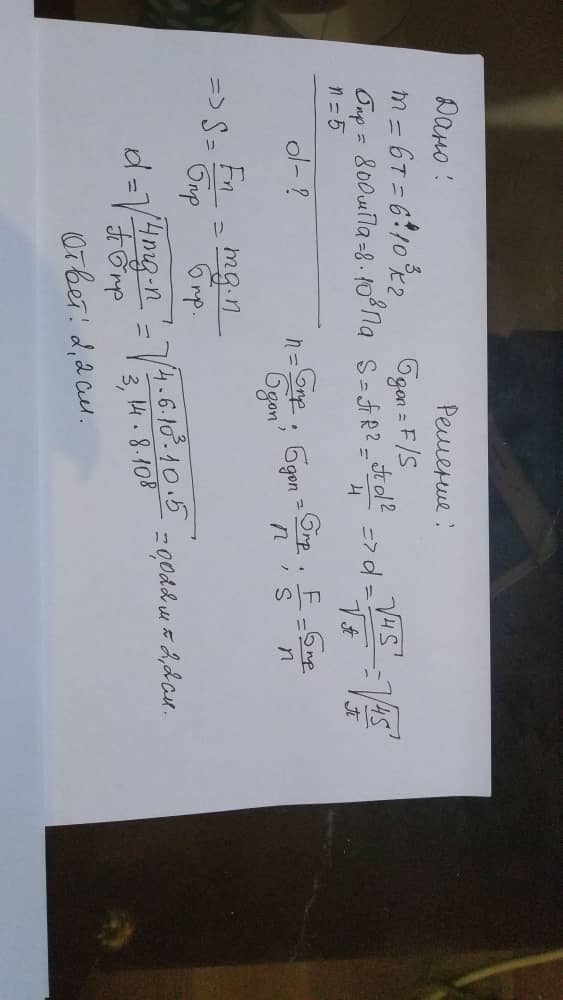 Дано:
m = 6т = 6·10³ кг
σпр = 800мПа = 8·10⁸Па
n = 5
d - ?
Решение:
σдоп = F/S
S = πR² = πd²/4 => d = √4S/√π = √4S/π
n = σпр/σдоп; σдоп = σпр/n; F/S = σпр/n
=> S = Fn/σпр = mg·n/σпр.
d = √4mg·n/πσпр = √4·6·10³·10·5/3,14·8·10⁸ = 0,022м ≈ 2,2см.
Ответ: 2,2см.